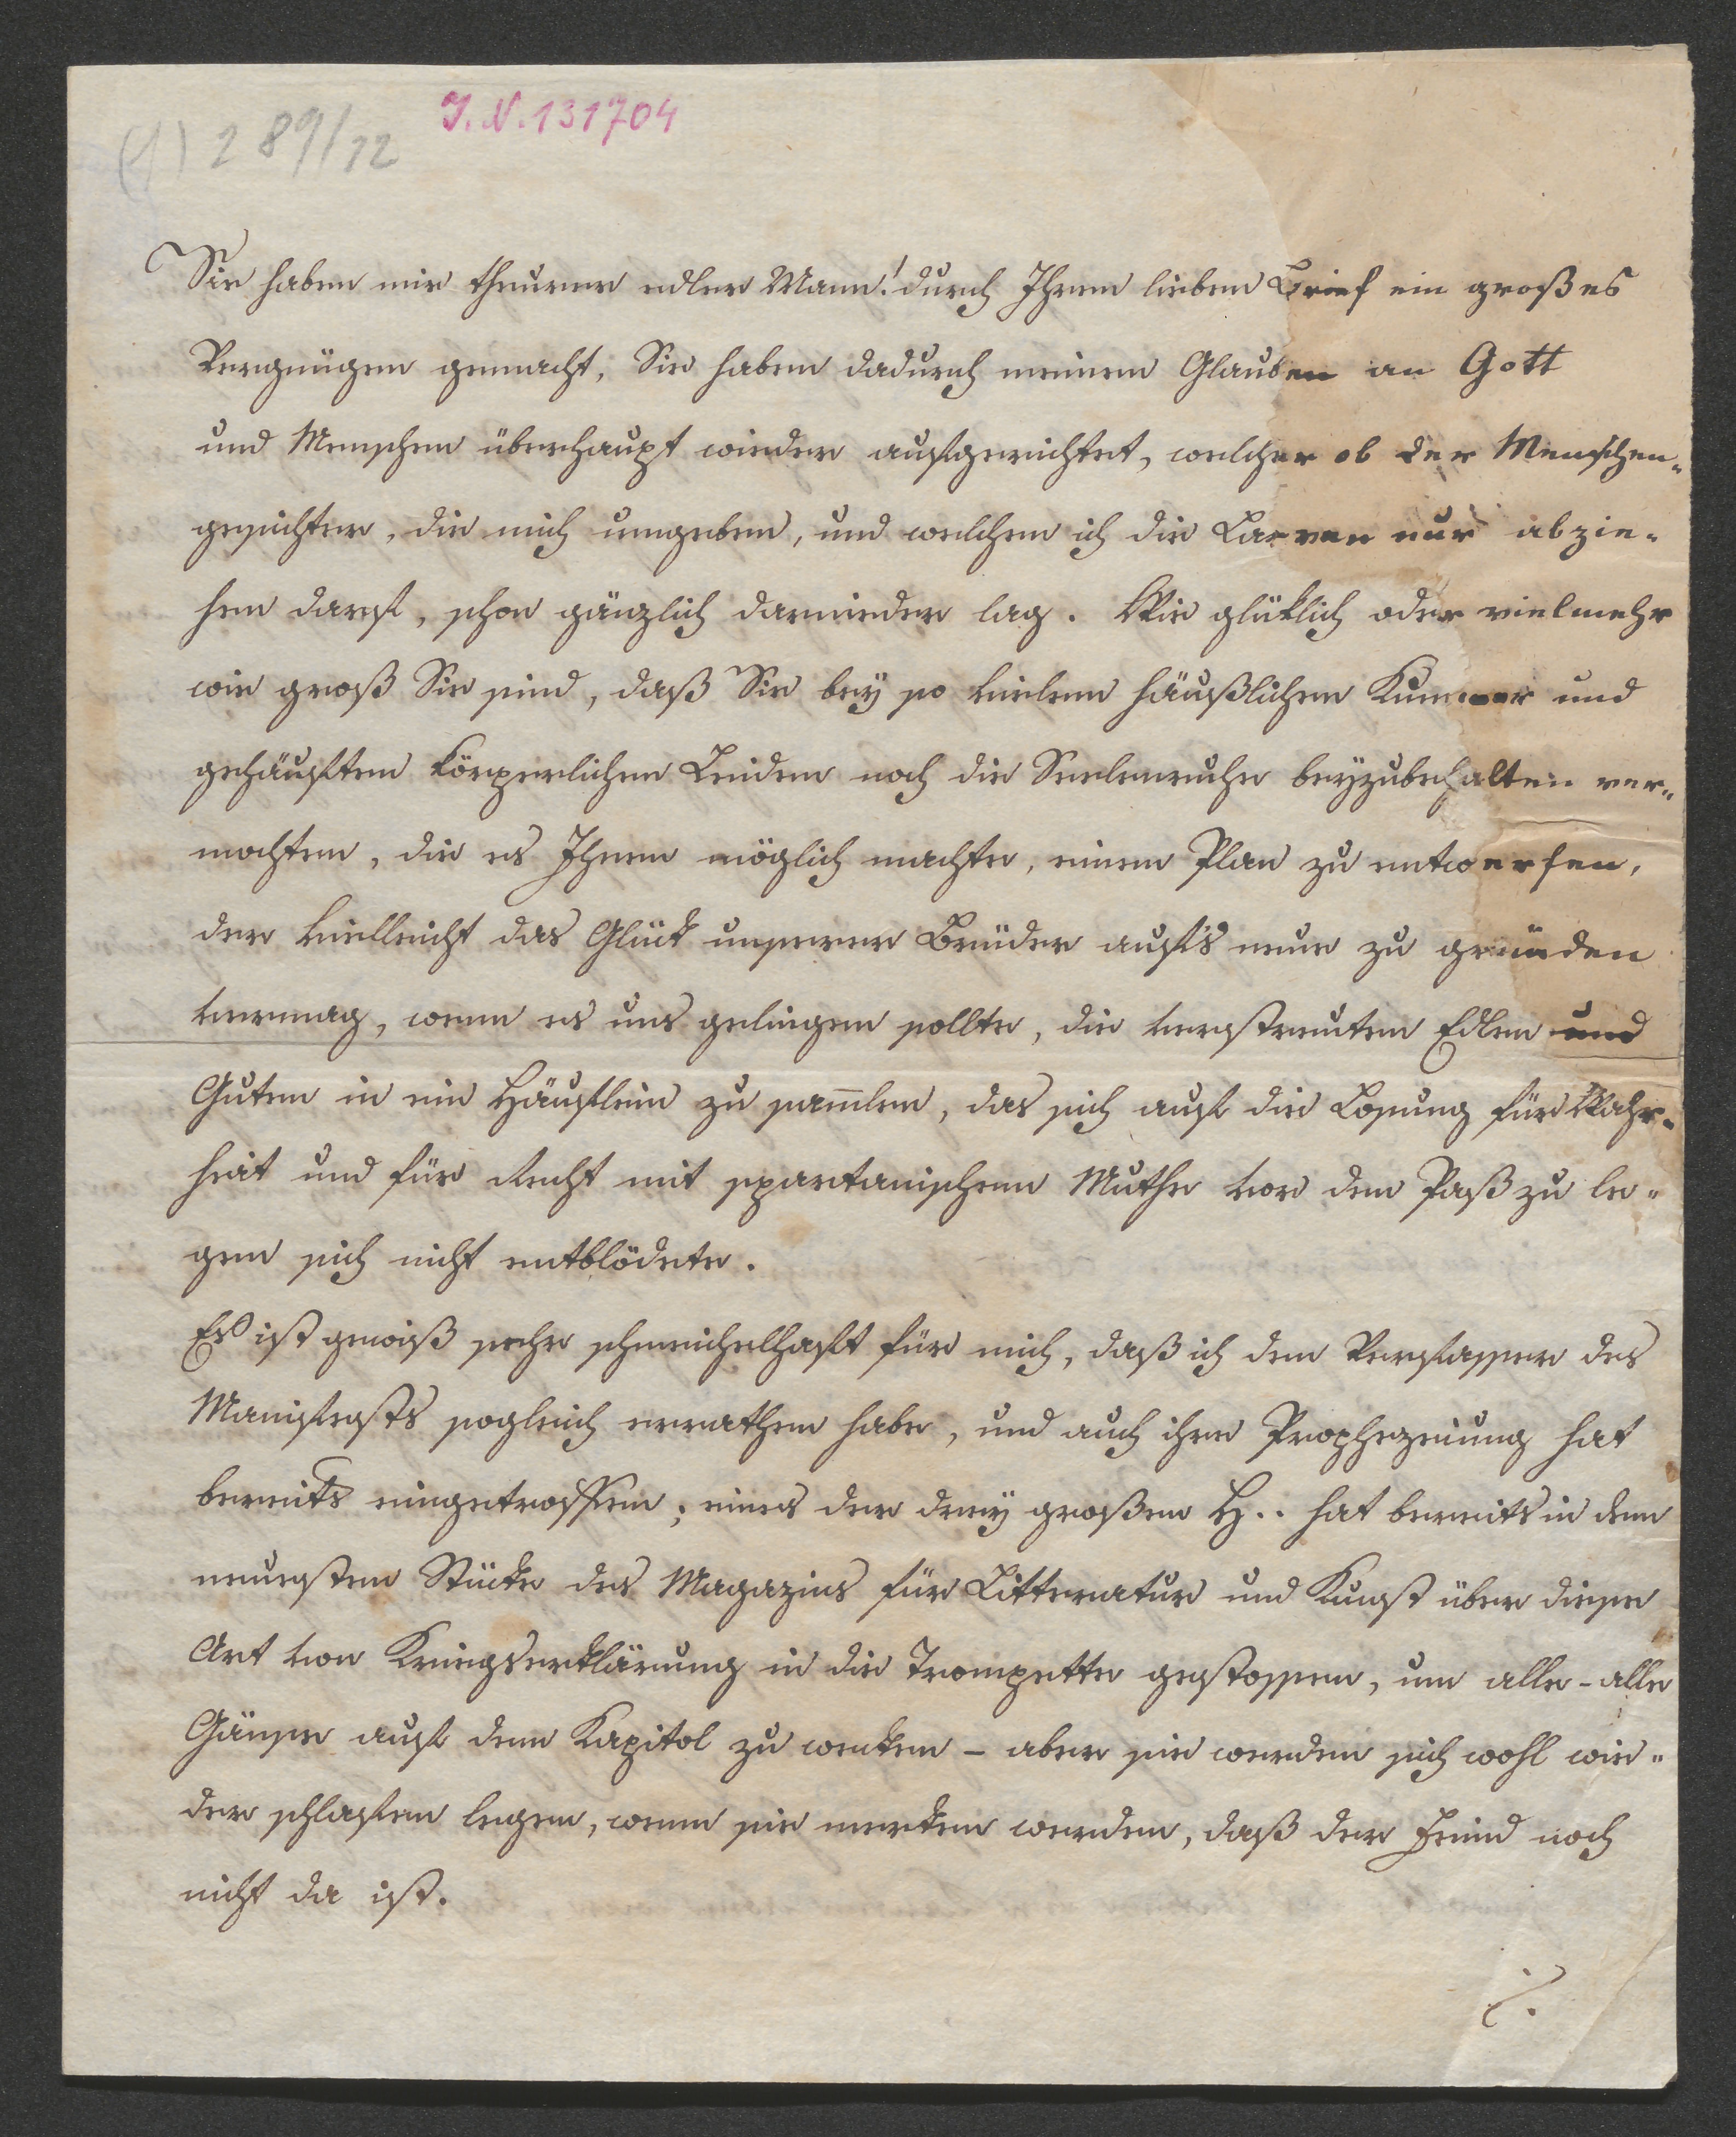 (4) 289/12
I.N. 131704
Sie haben mir theurer edler Mann! durch Ihren lieben Brief ein großes
Vergnügen gemacht, Sie haben dadurch meinen Glauben an Gott
und Menschen überhaupt wieder aufgerichtet, welcher ob der Menschen-
gesichter, die mich umgeben, und welchen ich die Larven nur abzie-
hen darf, schon gänzlich darnieder lag. Wie glüklich oder vielmehr
wie groß Sie sind, daß Sie bey so vielem häußlichen Kummer und
gehäuften körperlichen Leiden noch die Seelenruhe beyzubehalten ver-
mochten, die es Ihnen möglich machte, einen Plan zu entwerfen,
der vielleicht das Glük unserer Brüder auf's neue zu gründen
vermag, wenn es uns gelingen sollte, die verstreuten Edlen und
Guten in ein Häuflein zu samlen, das sich auf die Losung für Wahr-
heit und für Recht mit spartanischem Muthe vor den Paß zu le-
gen sich nicht entblödete.
Es ist gewiß sehr schmeichelhaft für mich, daß ich den Verfasser des
Manifests sogleich errathen habe, und auch ihre Prophezeiung hat
bereits eingetroffen; eines der drey großen H.. hat bereits in dem
neuesten Stücke des Magazins für Litteratur und Kunst über diese
Art von Kriegserklärung in die Trompette gestossen, um alle - alle
Gänse auf dem Kapitol zu wecken - aber sie werden sich wohl wie-
der schlafen legen, wenn sie merken werden, daß der Feind noch
nicht da ist.